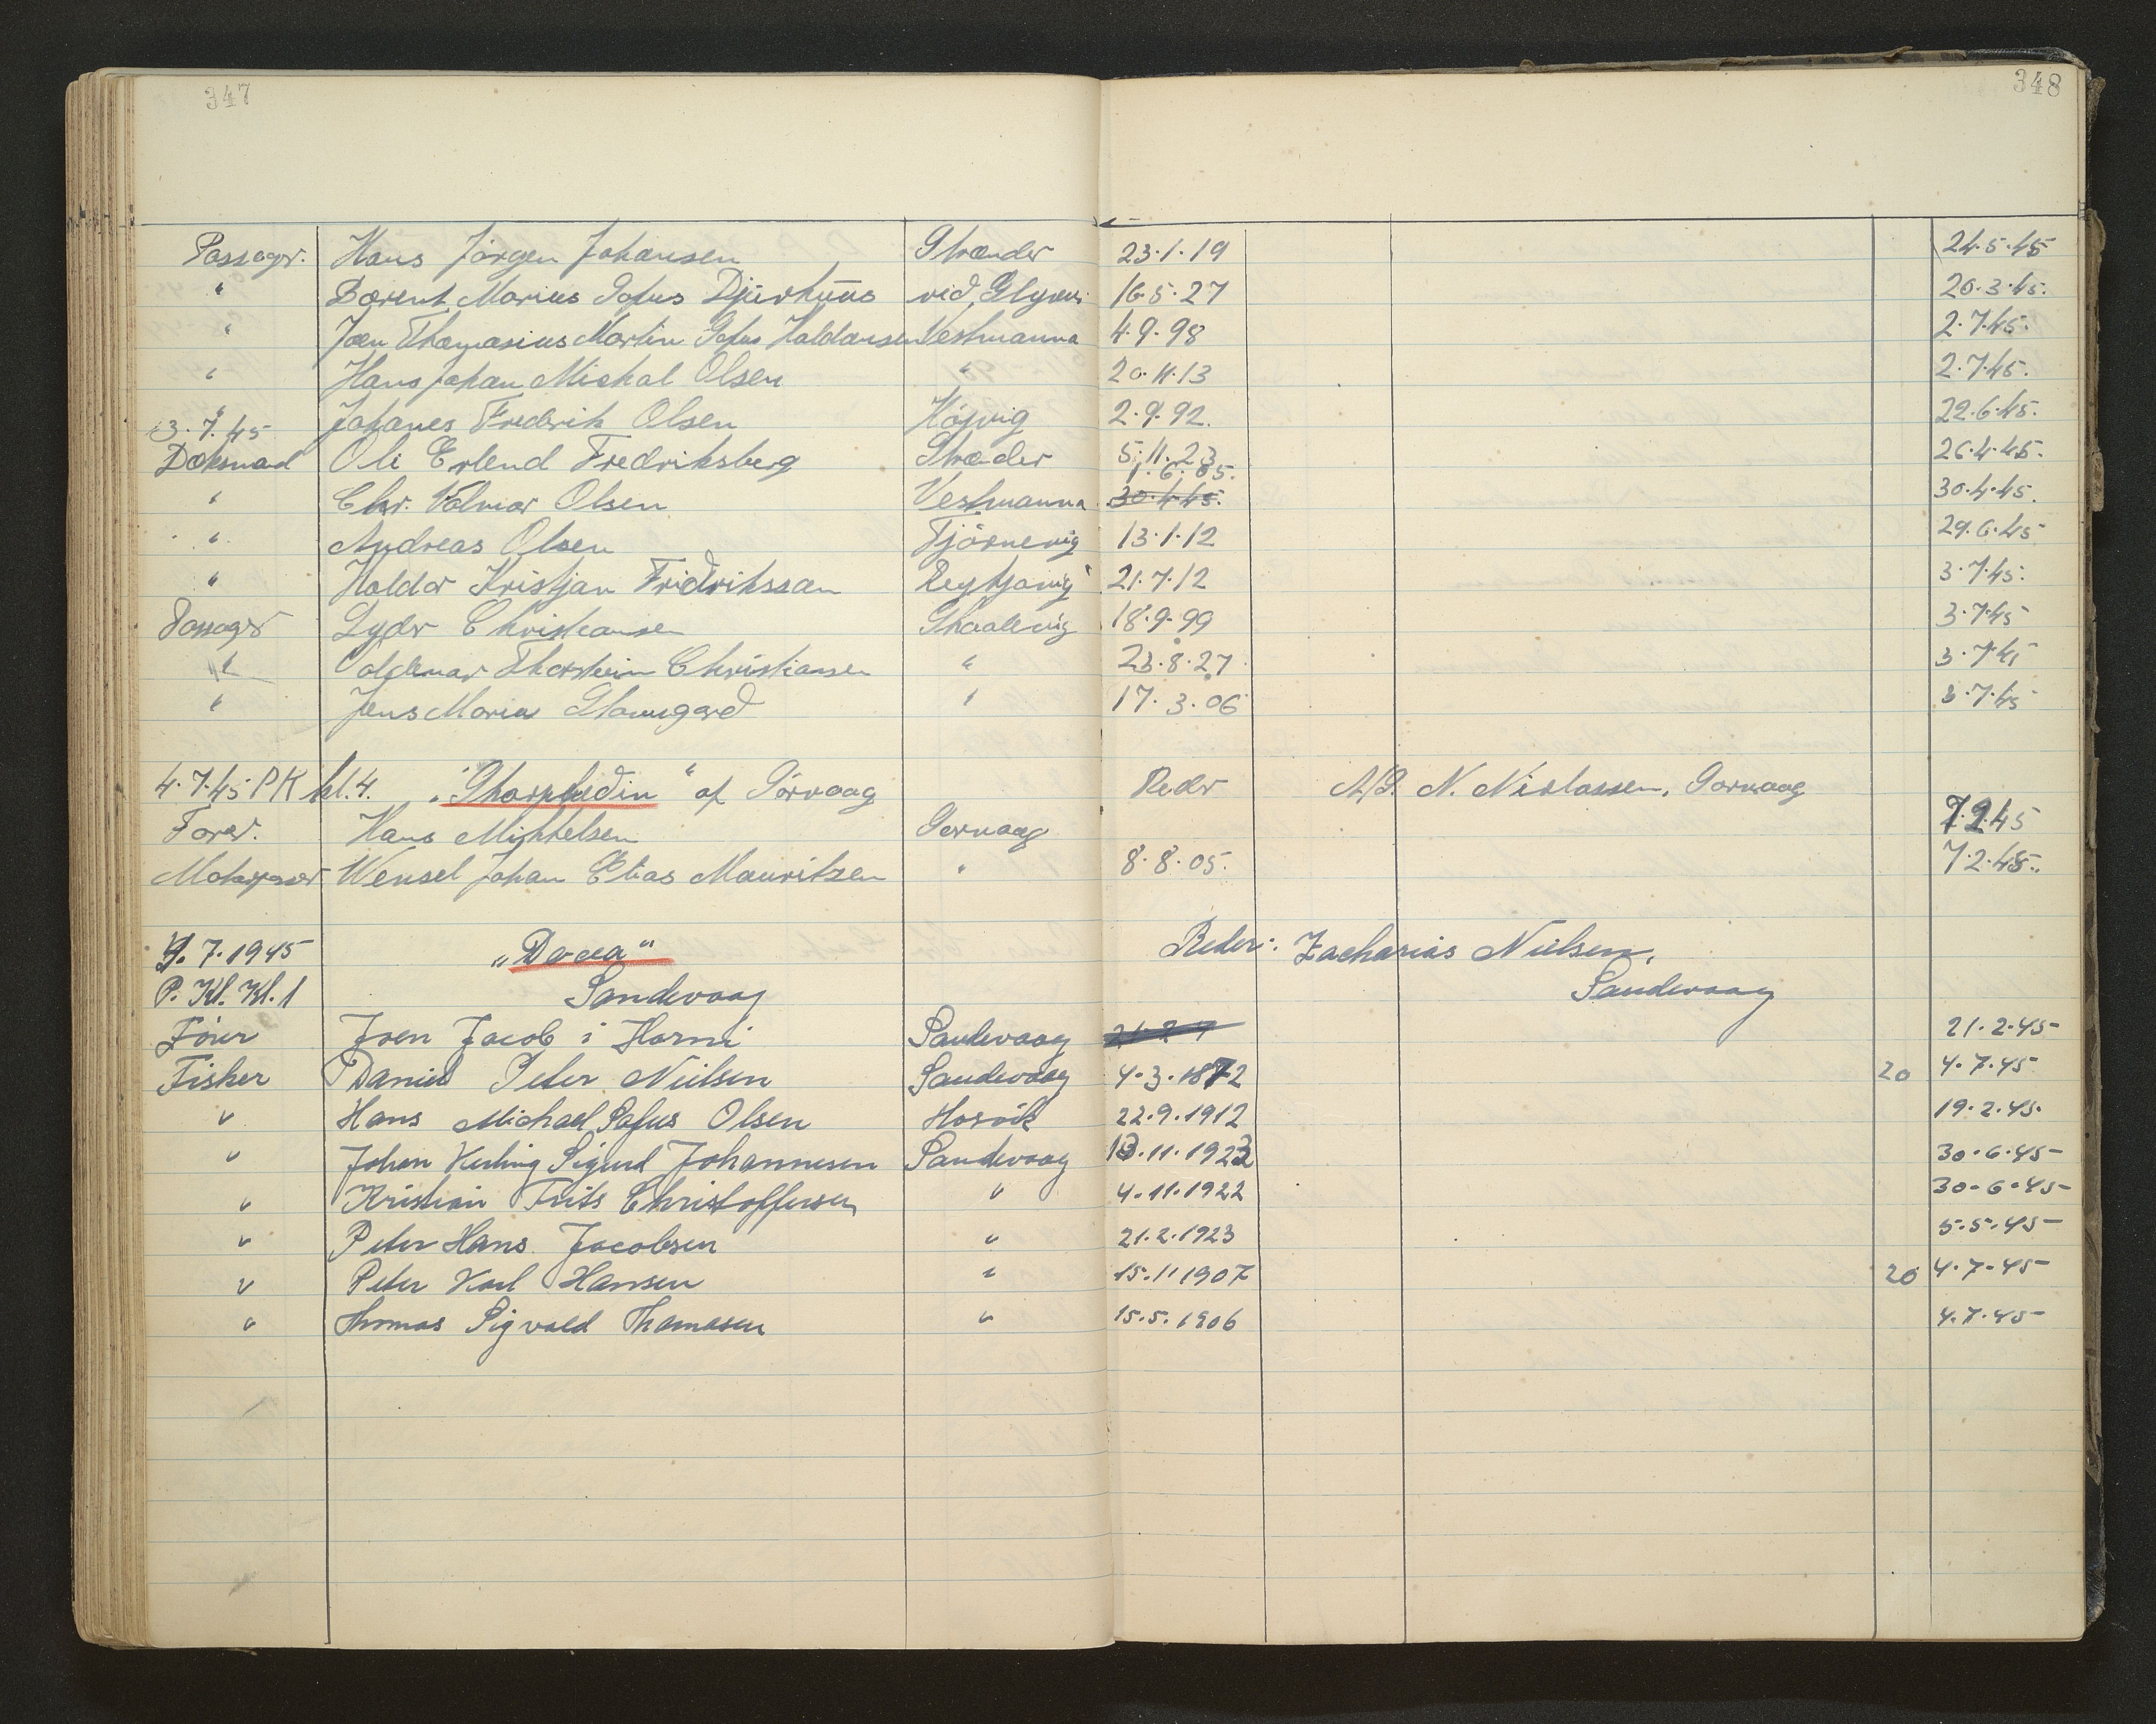 347
348
Passager. Hans Jörgen Johansen Strænder 23.1.19 24.5.45
" Barent Marius Sofus Djurhuus við Glyvur 16.5.27 20.3.45.
" Joen Thomasius Martin Sofus Haldansen Vestmanna 4.9.98 2.7.45.
" Hans Johan Michal Olsen " 20.11.13 2.7.45.
" Johanes Fredrik Olsen Hósvig 2.9.92. 22.6.45.
3.7.45
Dæksmand Oli Erlend Fredriksberg Strænder 5.11.23 26.4.45.
1.6.85.
" Chr. Volmar Olsen Vestmanna 30.4.45. 30.4.45.
" Andreas Olsen Tjörnevig 13.1.12 29.6.45
" Haldor Kristjan Fridrikssson Reykjavig 21.7.12 3.7.45.
Passager Lyder Christiansen Skaalevig 18.9.99 3.7.45
" Valdemar Thorstein Christiansen " 23.8.27 3.7.45
" Jens Marius " 17.3.06 3.7.45
4.7.45 PK kl. 4. " " af Sörvaag Reder A/S. N. Niclassen, Sorvaag
Forer. Hans Mikkelsen Sorvaag 7.2.45
Motorpasser Wensel Johan Elias Mauritzen " 8.8.05. 7.2.45.
4.7.1945 "Docea" Reder: Zacharias Nielsen,
P. Kl. Kl. 1 Sandevaag Sandevaag
Förer Joen Jacob i Horni Sandevaag 21.2.45
Fisker Daniel Peter Nielsen Sandevaag 4.3.1872 20 4.7.45
" Hans Michael Sofus Olsen Hosvik 22.9.1912 19.2.45.
" Johan Kerling Sigurd Johannesen Sandevaag 13.11.1923 30.6.45
" Kristian Frits Christoffersen " 4.11.1922 30.6.45
" Peter Hans Jacobsen " 21.2.1923 5.5.45
" Peter Karl Hansen " 15.11 1907 20 4.7.45
" Thomas Sigvald Thomasen " 15.5.1906 4.7.45